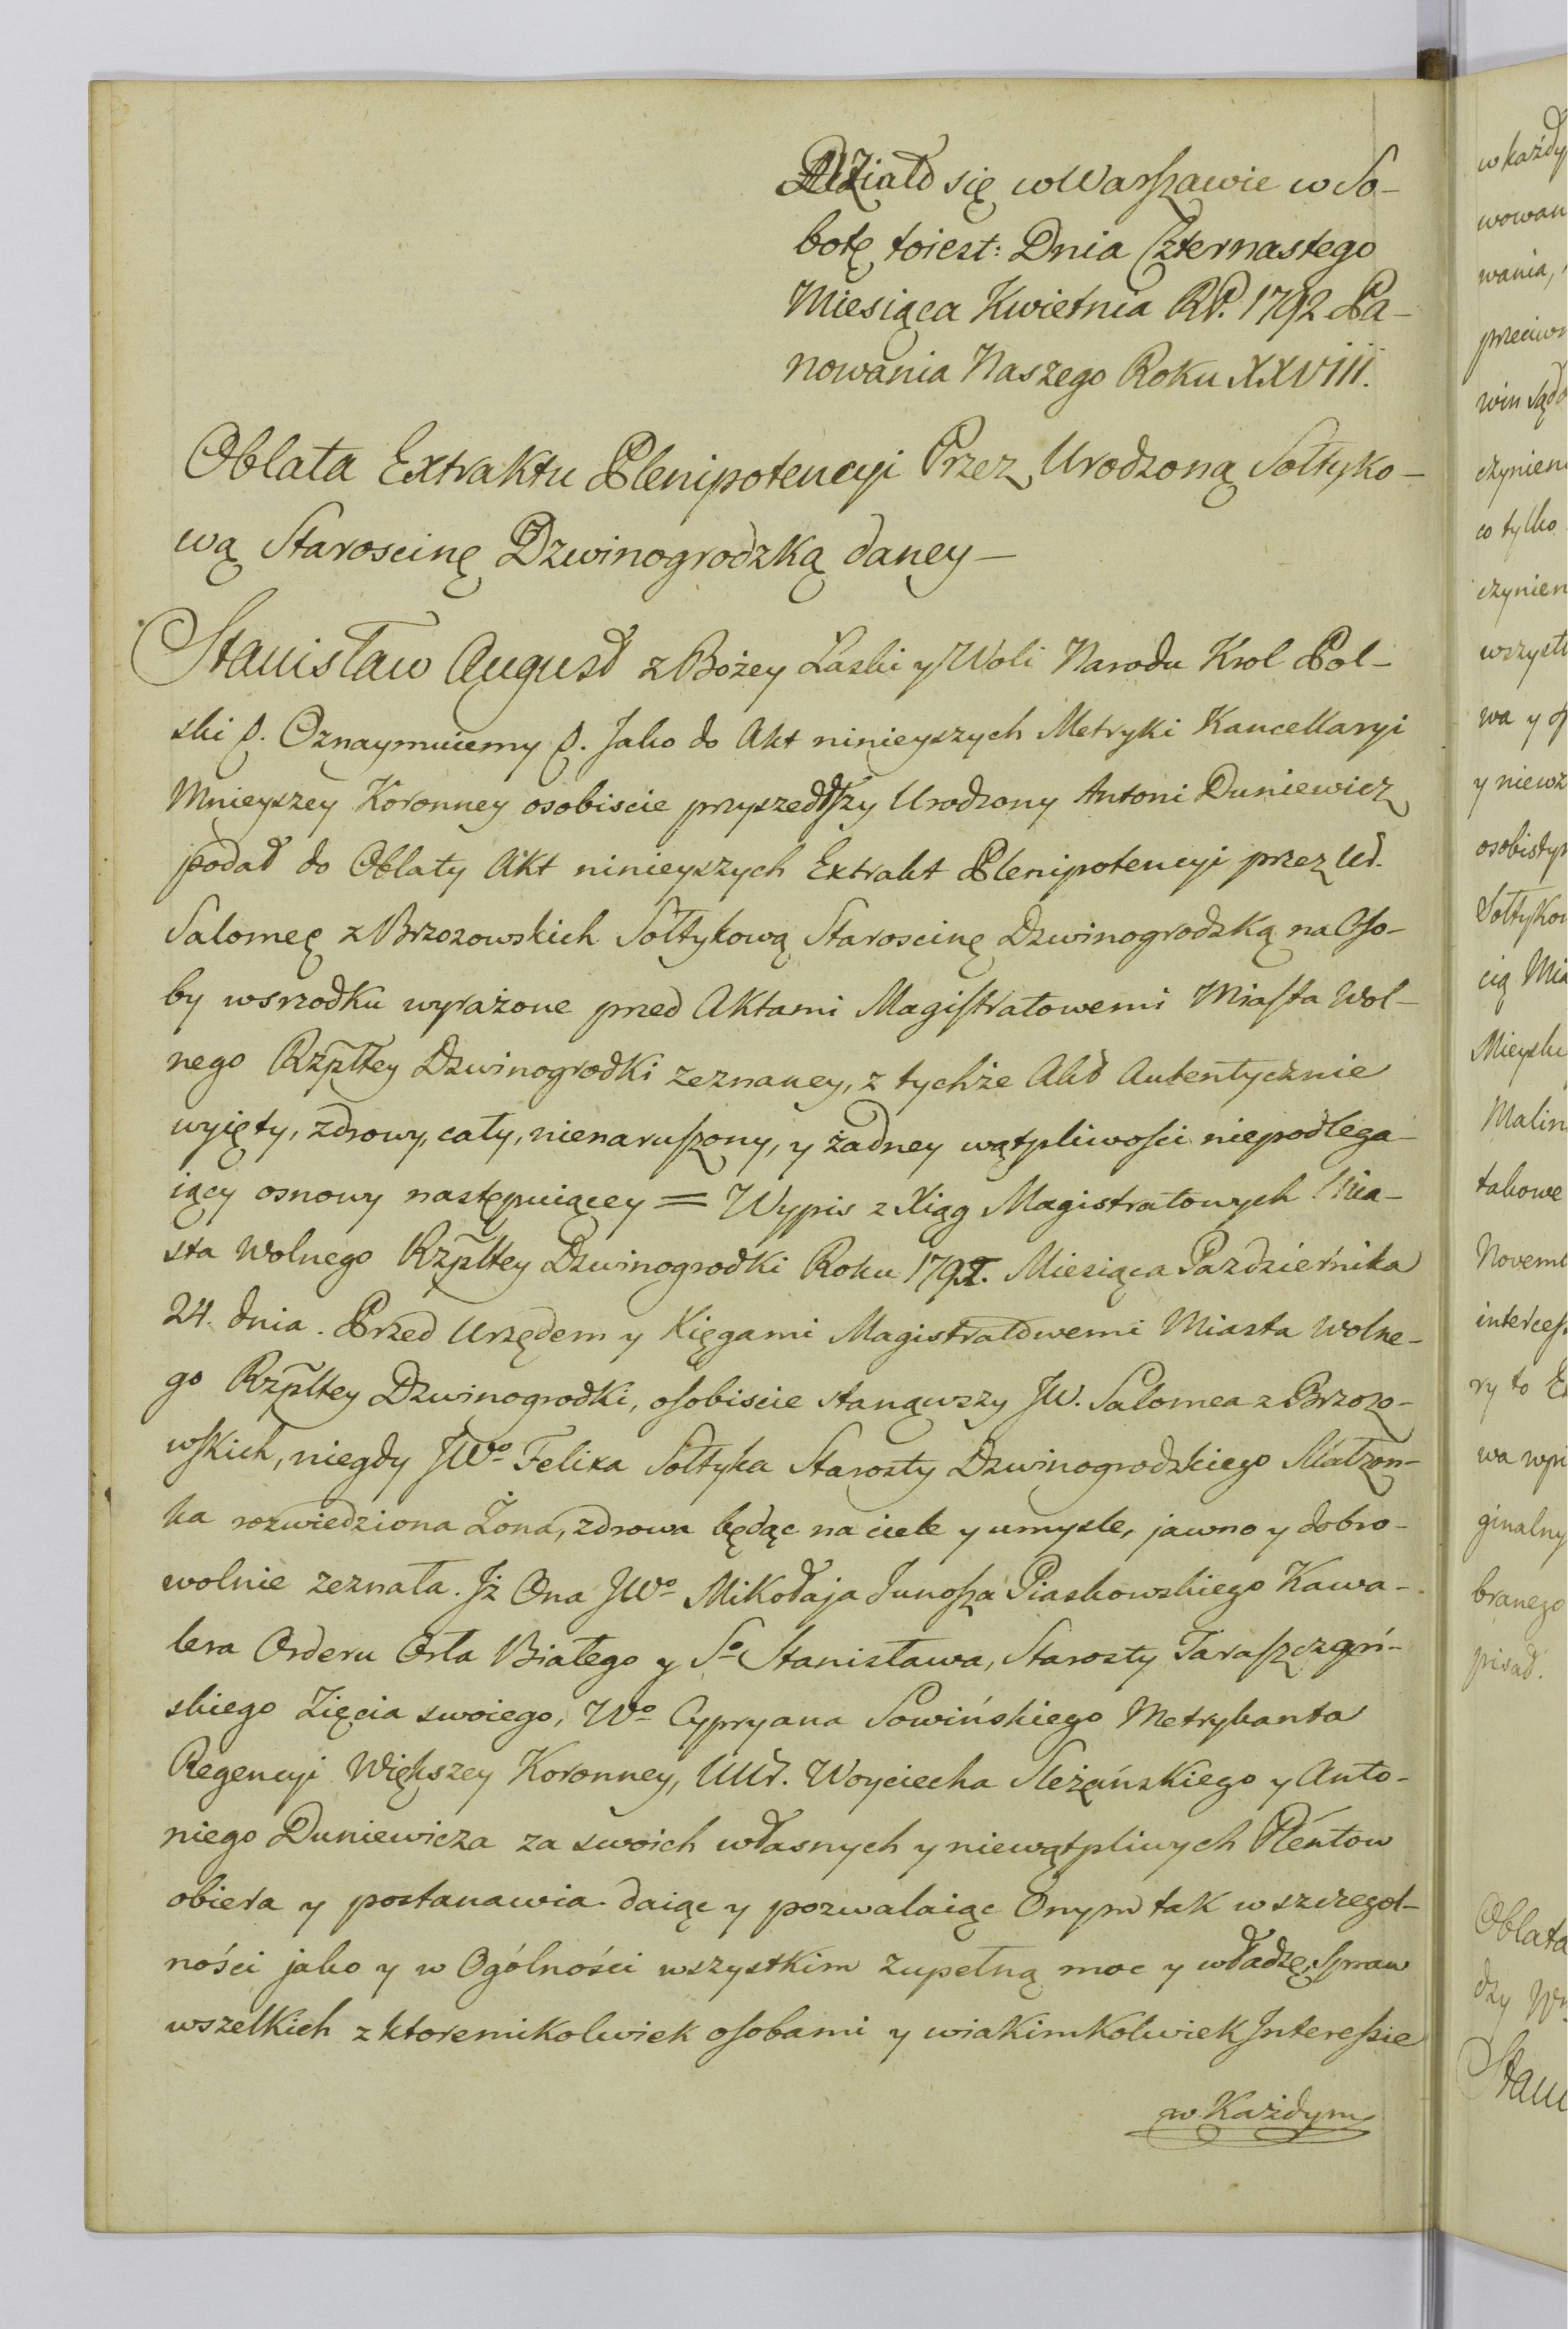 Działo się w Warszawie w So-
botę toiest: Dnia Czternastego
Miesiąca Kwietnia RP. 1792 Pa-
nowania Naszego Roku XXVIII.
Oblata Extraktu Plenipotencyi Przez Urodzoną Sołtyko-
wą Staroscinę Dzwinogrodzką daney —
Stanisław August z Bożey Łaski y Woli Narodu Krol Pol-
ski &. Oznaymuiemy &. Jako do Akt ninieyszych Metryki Kancellaryi
Mnieyszey Koronney osobiscie przyszedłszy Urodzony Antoni Duniewicz
podał do Oblaty Akt ninieyszych Extrakt Plenipotencyi przez Ur.
Salomeę z Brzozowskich Sołtykową Staroscinę Dzwinogrodzką na Oso-
by wsrzodku wyrażone przed Aktami Magistratowemi Miasta Wol-
nego Rzpltey Dzwinogrodki zeznaney, z tychże Akt Autentycznie
wyięty, zdrowy, cały, nienaruszony, y żadney wątpliwości niepodlega-
iący osnowy następuiącey = Wypis z Xiąg Magistratowych Mia-
sta Wolnego Rzpltey Dzwinogrodki Roku 1791. Miesiąca Pazdziernika
24. dnia. Przed Urzędem y Xięgami Magistratowemi Miasta Wolne-
go Rzpltey Dzwinogrodki, osobiscie stanąwszy JW. Salomea z Brzozo-
wskich, niegdy JWo Felixa Sołtyka Starosty Dzwinogrodzkiego Małzon-
ka rozwiedziona Żona, zdrowa będąc na ciele y umysle, jawno y dobro-
wolnie zeznała. Jż Ona JWo Mikołaja Junosza Piaskowskiego Kawa-
lera Orderu Orła Białego y So Stanisława, Starosty Taraszczyń-
skiego Zięcia swoiego, Wo Cypryana Sowińskiego Metrykanta
Regencyi Większey Koronney, UUr. Woyciecha Sleżańskiego y Anto-
niego Duniewicza za swoich własnych y niewątpliwych Plentow
obiera y postanawia daiąc y pozwalaiąc Onym tak w szczegol-
ności jako y w Ogólności wszystkim zupełną moc y władzę, Spraw
wszelkich z ktoremikolwiek osobami y wiakimkolwiek Interessie
w Każdym